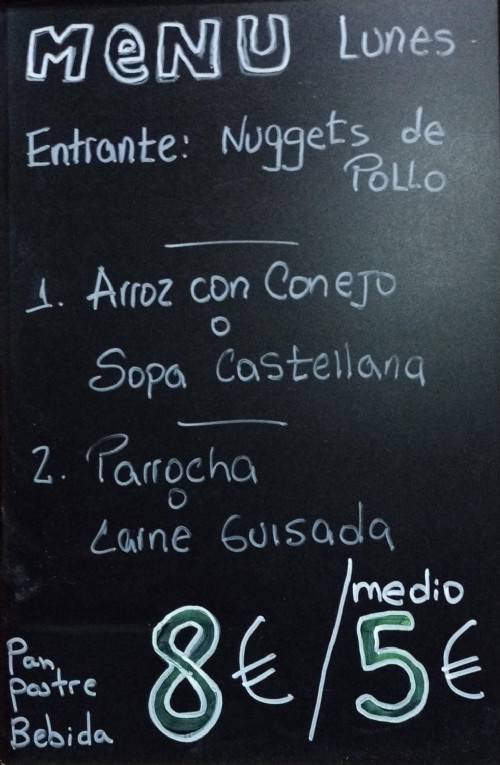 MeNU Lunes
Entrante: Nuggets de
Pollo
1. Arroz con Conejo
o
Sopa Castellana
2. Parrocha
o
Carne Guisada
medio
8€/5€
Pan,
postre
Bebida